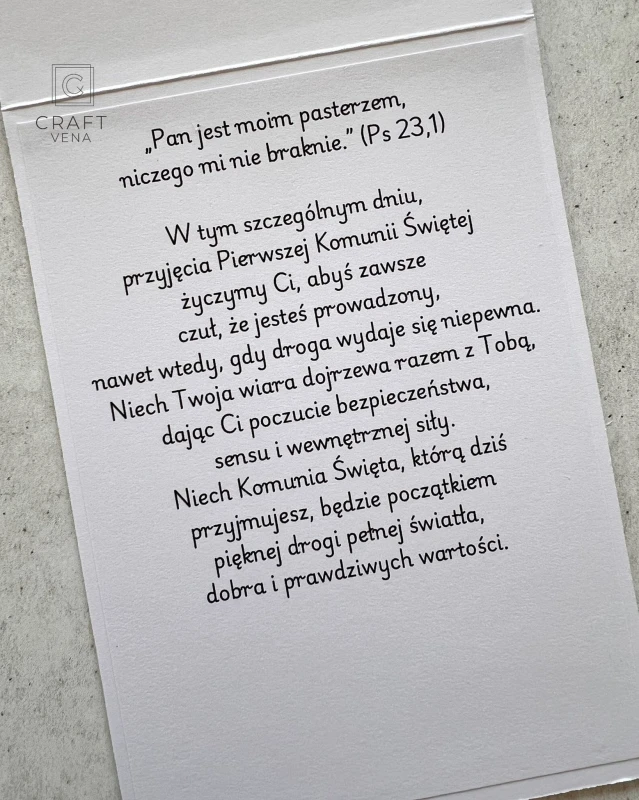 CRAFT
VENA
„Pan jest moim pasterzem,
niczego mi nie braknie.” (Ps 23,1)
W tym szczególnym dniu,
przyjęcia Pierwszej Komunii Świętej
życzymy Ci, abyś zawsze
czuł, że jesteś prowadzony,
nawet wtedy, gdy droga wydaje się niepewna.
Niech Twoja wiara dojrzewa razem z Tobą,
dając Ci poczucie bezpieczeństwa,
sensu i wewnętrznej siły.
Niech Komunia Święta, którą dziś
przyjmujesz, będzie początkiem
pięknej drogi pełnej światła,
dobra i prawdziwych wartości.